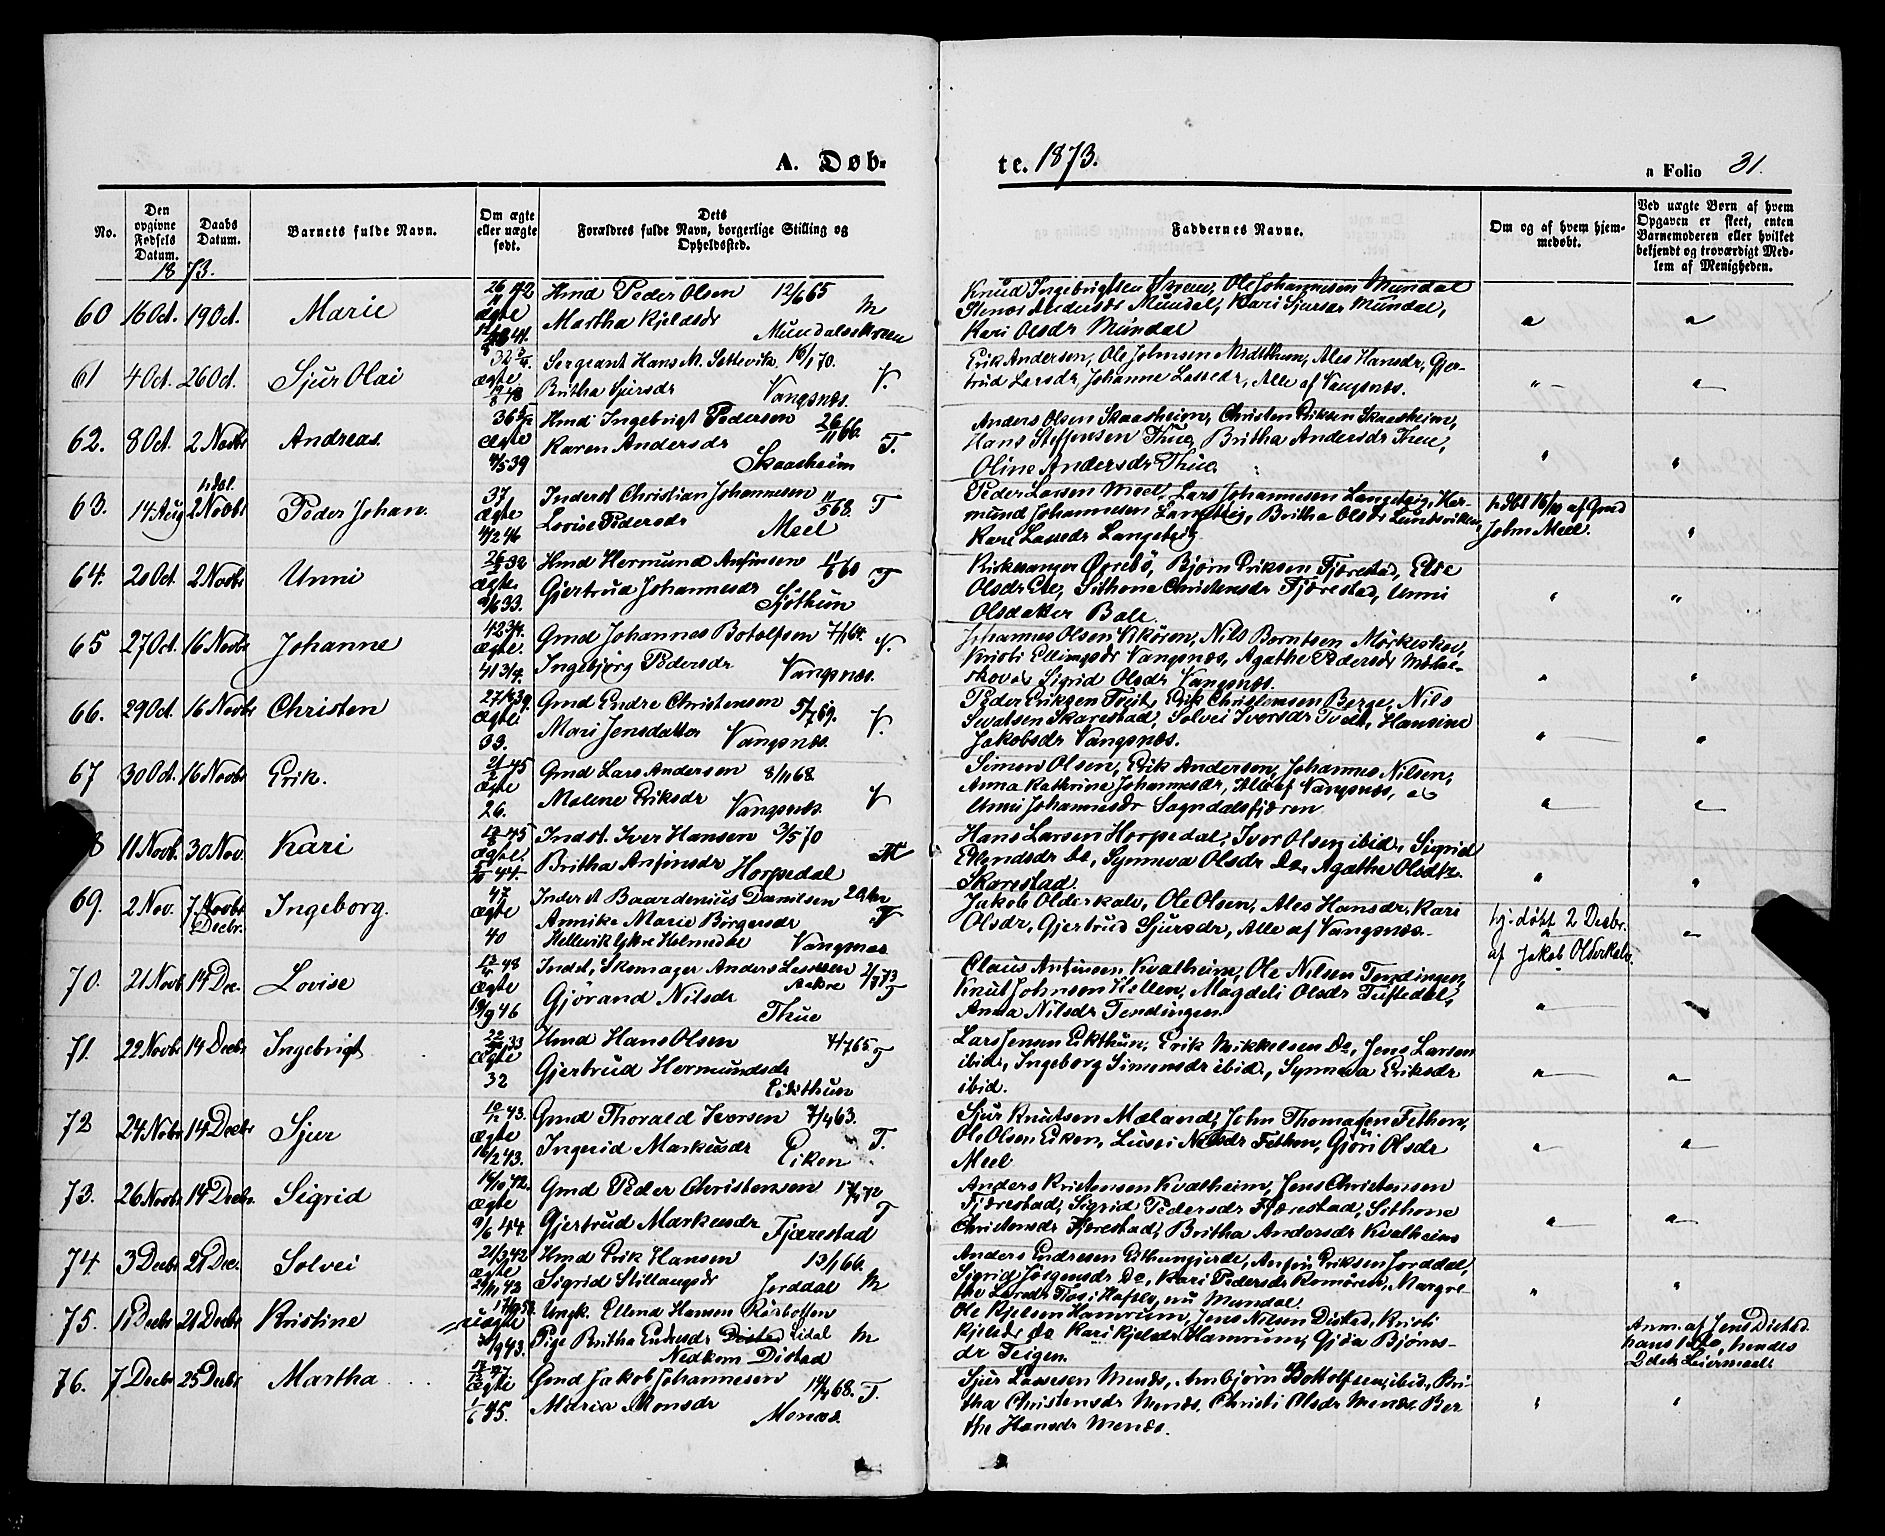 A. Døb-
te. 1873.
a Folio 31.
No.
Den opgivne Fødsels Datum.
Daabs Datum.
Barnets fulde Navn.
Om ægte eller uægte født.
Dets Forældres fulde Navn, borgerlige Stilling og Opholdssted.
Faddernes Navne.
Om og af hvem hjem-
medøbt.
Ved uægte Børn af hvem
Opgaven er skeet, enten
Barnemoderen eller hvilket
bekjendt og troværdigt Med-
lem af Menigheden.
1873.
60 16 Oct. 19 Oct. Marie ægte Hmd Peder Olsen 12/6 65
Martha Kjeldsdr M
Mundalsskreen
Knud Ingebrigtsen Skreen, Ole Johannesen Mundal
Andersdr Mundal, Kari Sjursdr Mundal,
Kari Olsdr Mundal
61 4 Oct. 26 Oct. Sjur Olai ægte Sergeant Hans M. Settevik 16/1 70.
Britha Sjursdr Vangsnæs. V.
Erik Andersen, Ole Johnsen Midthun, Ales Hansdr, Gjer-
trud Larsdr, Johanne Lassedr, Alle af Vangsnæs.
62. 8 Oct. 2 Novbr Andreas. ægte Hmd Ingebrigt Pedersen 26/11 66.
Karen Andersdr T.
4/5 39 Skaasheim
Anders Olsen Skaasheim, Christen Eriksen Skaasheim,
Hans Steffensen Thue, Britha Andersdr Thue,
Oline Andersdr Thue.
63. 14 Aug 2 Novbr Peder Johan. 37 ægte Inderst Christian Johannesen 11/5 68. T
Lovise Pedersdr
4/2 46 Meel
Peder Larsen Meel, Lars Johannesen Langeteig, Her-
mund Johannesen Langeteig, Britha Olsdr Lundsviken,
Kari Lassedr Langeteig.
h. dbt 16/10 af Gmd
John Meel.
64. 20 Oct. 2 Novbr Unni ægte Hmd Hermund Anfinsen 11/6 60
Gjertrud Johannesdr T
9/6 33. Sjøthun
Kirkesanger Ørebø, Bjørn Eriksen Fjærestad, Else
Olsdr Ese, Sithone Christensdr Fjærestad, Unni
Olsdatter Bale.
65 27 Oct. 16 Novbr Johanne ægte. Gmd Johannes Botolfsen 7/1 64. V.
Ingebjørg Pedersdr Vangsnæs.
Johannes Olsen Vikøren, Nils Berntsen Mørkeskov,
Kristi Ellingsdr Vangsnæs, Agathe Pedersdr
Sigrid Olsdr Vangsnæs.
66. 29 Oct. 16 Novbr Christen ægte Gmd Endre Christensen 5/7 69.
Mari Jensdatter Vangsnæs. V.
33.
Peder Eriksen Tveit, Erik Christensen Berge, Nils
Sivatsen Skarestad, Solvei Iversdr Tvedt, Hansine
Jakobsdr Vangsnæs.
67 30 Oct. 16 Novbr Erik. 45 ægte Gmd Lars Andersen 8/11 68
Malene Eriksdr Vangsnæs V
26.
Simon Olsen, Erik Andersen, Johannes Nilsen,
Anna Kathrine Johannesdr, Alle af Vangsnæs,
Unni Johannesdr Sogndalsfjæren
8 11 Novb. 30 Nov. Kari ægte. Indst. Iver Hansen 3/5 70
Britha Anfinsdr Horpedal
Hans Larsen Horpedal, Iver Olsen ibid, Sigrid
Erlendsdr Do, Synneva Olsdr Do, Agathe Olsdtr.
Skarestad.
69. 2 Nov. 7 Novbr Decbr. Ingeborg. 47 ægte Inderst Baardenius Danielsen
Annike Marie Børgersdr V
40 Vangsnæs
Jakob Olderkalv, Ole Olsen, Ales Hansdr, Kari
Olsdr, Gjertrud Sjursdr, Alle af Vangsnæs.
hj: døbt 2 Decbr.
af Jakob Olderkalv.
70. 21 Novb 14 Dec. Lovise ægte Indst, Skomager Anders Lassesen 2/7 73
Gjørand Nilsdr T
19/9 46 Thue
Claus Anfinsen Kvalheim, Ole Nilsen Tendingen,
Knut Johnsen Hellen, Magdeli Olsdr Tuftedal,
Anna Nilsdr Tendingen
71. 22 Novbr 14 Decbr Ingebrigt ægte Hmd Hans Olsen 4/7 65 T
Gjertrud Hermundsdr
32 Eikthun
Lars Jensen Eikthun, Erik Mikkelsen Do, Jens Larsen
ibid, Ingeborg Simensdr ibid, Synneva Eriksdr
ibid.
72 24 Nobr 14 Decbr Sjur ægte Gmd Thorald Iversen 7/4 63.
Ingerid Markusdr T.
16/2 43. Eiken
Sjur Knutsen Mæland, John Thomassen Fethen,
Ole Olsen Eiken, Lussi Nilsdr Fethen, Gjøri Olsdr
Meel
73. 26 Novbr 14 Decbr. Sigrid ægte Gmd Peder Christensen
Gjertrud Markusdr T
9/6 44 Fjærestad
Anders Kristensen Kvalheim, Jens Christensen
Fjærestad, Sigrid Pedersdr Fjærestad, Sithone
Christensdr Fjærestad, Britha Andersdr Kvalheim
74. 3 Decbr 21 Dec. Solvei 21/3 42 ægte Hmd Erik Hansen 13/1 66.
Sigrid Stillaugsdr Jorddal M
Anders Endresen Eithungjerde, Anfin Eriksen Jorddal,
Sigrid Jørgensdr Do, Kari Pedersdr Romøren, Margre-
the Larsdr Hafslo, nu Mundal.
75. 1 Decbr 21 Decbr Kristine uægte Ungk. Ellend Hansen
Pige Britha Endresdr M
Nedkom Distad
Ole Kjelsen Hamrum, Jens Nilsen Distad, Kristi
Kjelsdr do Kari Kjelsdr Hamrum, Gjøa Bjørns-
dr Teigen.
Anm. af Jens Distad.
hans 1ste, hendes
2det Leiermaal
76. 7 Decbr 25 Decbr Martha ægte Gmd Jakob Johannesen T.
Maria Monsdr
Menæs.
Sjur Lassesen Menæs, Arnbjørn Bottolfsen, ibid, Bri-
tha Christensdr Menæs, Christi Olsdr Menæs, Ber-
the Hansdr Menæs.